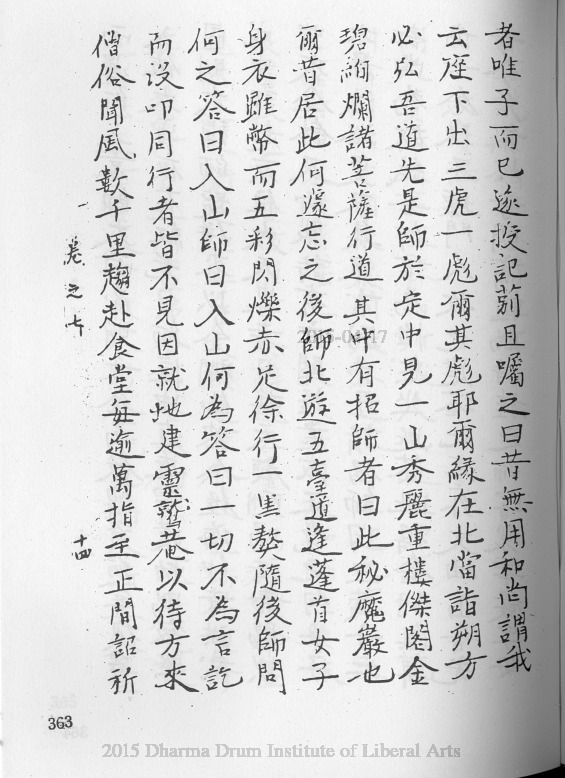 者唯子而已遂授記莂且囑之曰昔無用和尚謂我
云座下出三虎一彪爾其彪耶爾緣在北當詣朔方
必弘吾道先是師於定中見一山秀麗重樓傑閣金
碧絢爛諸菩薩行道其中有招師者曰此秘魔巖也
爾昔居此何遽忘之後師北遊五臺道逢蓬首女子
身衣雖幣而五彩閃爍赤足徐行一黑獒隨後師問
何之答曰入山師曰入山何為答曰一切不為言訖
而沒叩同行者皆不見因就地建靈鷲菴以待方來
僧俗聞風數千里趨赴食堂每逾萬指至正間詔祈
卷之七
十四
363
2015 Dharma Drum Institute of Liberal Arts